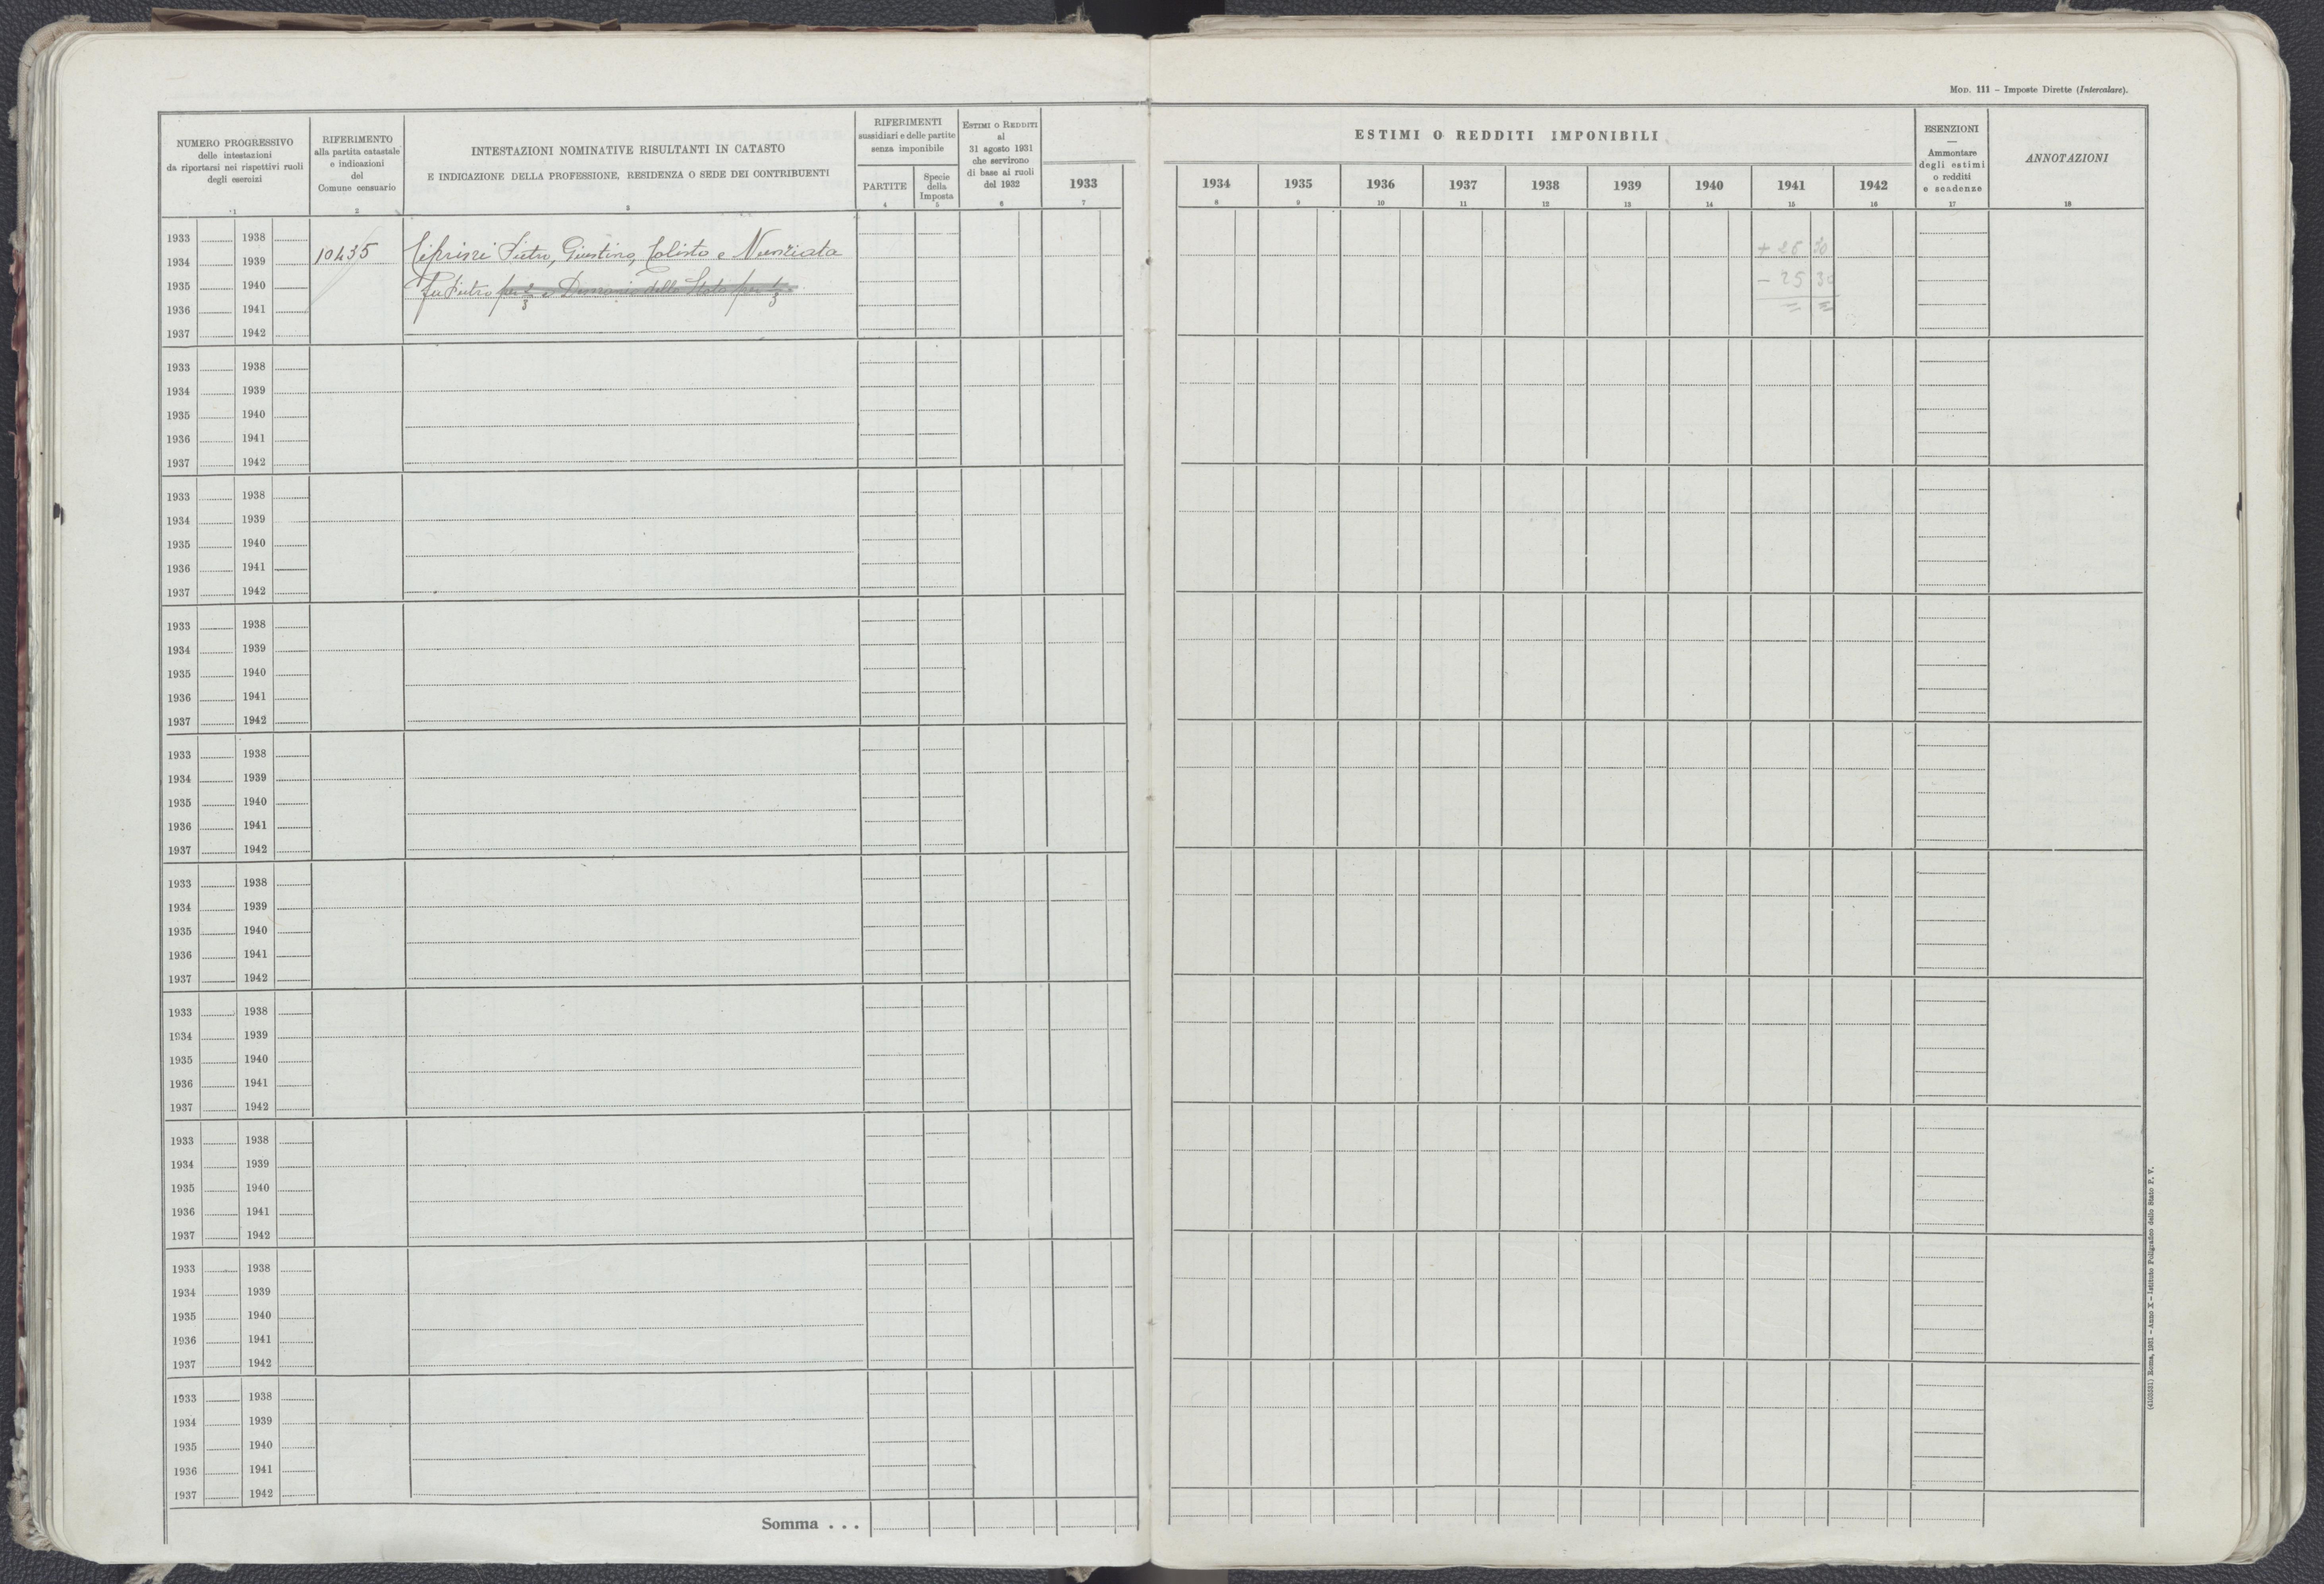 MOD. 111 – Imposte Dirette (Intercalare).
NUMERO PROGRESSIVO
delle intestazioni
da riportarsi nei rispettivi ruoli
degli esercizi
1
RIFERIMENTO
alla partita catastale
e indicazioni
del
Comune censuario
2
INTESTAZIONI NOMINATIVE RISULTANTI IN CATASTO
E INDICAZIONE DELLA PROFESSIONE, RESIDENZA O SEDE DEI CONTRIBUENTI
3
RIFERIMENTI
sussidiari e delle partite
senza imponibile
PARTITE
4
Specie
della
Imposta
5
ESTIMI O REDDITI
al
31 agosto 1931
che servirono
di base ai ruoli
del 1932
6
1933
7
ESTIMI O REDDITI IMPONIBILI
1934 1935 1936 1937 1938 1939 1940 1941 1942
8 9 10 11 12 13 14 15 16
ESENZIONI
—
Ammontare
degli estimi
o redditi
e scadenze
17
ANNOTAZIONI
18
1933 1938
1934 1939
1935 1940
1936 1941
1937 1942
10435
Ciprini Pietro, Giustino, Calisto e Nunziata
fu Pietro per 2/3 e Demanio dello Stato per 1/3
+ 25 30
– 25 30
= =
1933 1938
1934 1939
1935 1940
1936 1941
1937 1942
1933 1938
1934 1939
1935 1940
1936 1941
1937 1942
1933 1938
1934 1939
1935 1940
1936 1941
1937 1942
1933 1938
1934 1939
1935 1940
1936 1941
1937 1942
1933 1938
1934 1939
1935 1940
1936 1941
1937 1942
1933 1938
1934 1939
1935 1940
1936 1941
1937 1942
1933 1938
1934 1939
1935 1940
1936 1941
1937 1942
1933 1938
1934 1939
1935 1940
1936 1941
1937 1942
1933 1938
1934 1939
1935 1940
1936 1941
1937 1942
Somma . . .
Roma, 1931 – Anno X – Istituto Poligrafico dello Stato P. V.